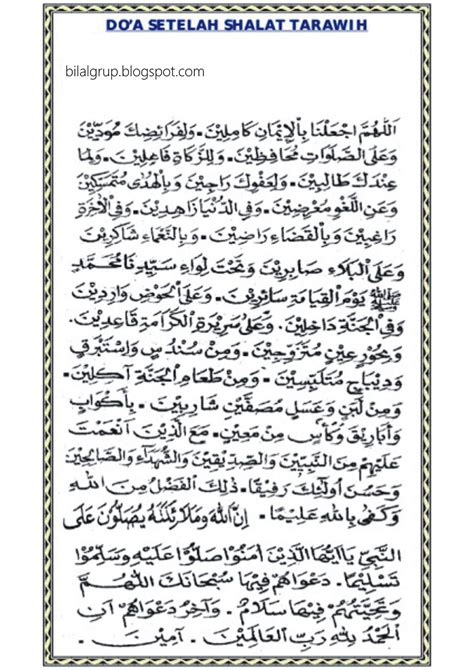 DO'A SETELAH SHALAT TARAWIH
bilalgrup.blogspot.com
اَللهُمَّ اجْعَلْنَا بِالْإِيْمَانِ كَامِلِيْنَ . وَلِفَرَائِضِكَ مُوَدِّيْنَ
وَعَلَى الصَّلَوَاتِ مُحَافِظِيْنَ . وَلِلزَّكَاةِ فَاعِلِيْنَ . وَلِمَا
عِنْدَكَ طَالِبِيْنَ . وَلِعَفْوِكَ رَاجِيْنَ وَبِالْهُدَى مُتَمَسِّكِيْنَ
وَعَنِ اللَّغْوِ مُعْرِضِيْنَ . وَفِى الدُّنْيَا زَاهِدِيْنَ . وَفِى الْآخِرَةِ
رَاغِبِيْنَ وَبِالْقَضَاءِ رَاضِيْنَ . وَبِالنَّعْمَاءِ شَاكِرِيْنَ
وَعَلَى الْبَلَاءِ صَابِرِيْنَ وَتَحْتَ لِوَاءِ سَيِّدِنَا مُحَمَّدٍ
ﷺ يَوْمَ الْقِيَامَةِ سَائِرِيْنَ . وَعَلَى الْحَوْضِ وَارِدِيْنَ
وَفِى الْجَنَّةِ دَاخِلِيْنَ . وَعَلَى سَرِيْرَةِ الْكَرَامَةِ قَاعِدِيْنَ .
وَبِحُوْرٍ عِيْنٍ مُتَزَوِّجِيْنَ . وَمِنْ سُنْدُسٍ وَاِسْتَبْرَقٍ
وَدِيْبَاجٍ مُتَلَبِّسِيْنَ . وَمِنْ طَعَامِ الْجَنَّةِ آكِلِيْنَ .
وَمِنْ لَبَنٍ وَعَسَلٍ مُصَفَّيْنِ شَارِبِيْنَ . بِأَكْوَابٍ
وَأَبَارِيْقَ وَكَأْسٍ مِنْ مَعِيْنٍ . مَعَ الَّذِيْنَ اَنْعَمْتَ
عَلَيْهِمْ مِنَ النَّبِيِّيْنَ وَالصِّدِّيْقِيْنَ وَالشُّهَدَاءِ وَالصَّالِحِيْنَ
وَحَسُنَ اُولٰئِكَ رَفِيْقًا . ذٰلِكَ الْفَضْلُ مِنَ اللهِ
وَكَفٰى بِاللهِ عَلِيْمًا . اِنَّ اللهَ وَمَلَائِكَتَهُ يُصَلُّوْنَ عَلَى
النَّبِيِّ يَااَيُّهَا الَّذِيْنَ آمَنُوْا صَلُّوْا عَلَيْهِ وَسَلِّمُوْا
تَسْلِيْمًا . دَعْوَاهُمْ فِيْهَا سُبْحَانَكَ اللّٰهُمَّ
وَتَحِيَّتُهُمْ فِيْهَا سَلَامٌ . وَآخِرُ دَعْوَاهُمْ اَنِ
الْحَمْدُ لِلّٰهِ رَبِّ الْعَالَمِيْنَ . آمِيْنَ .